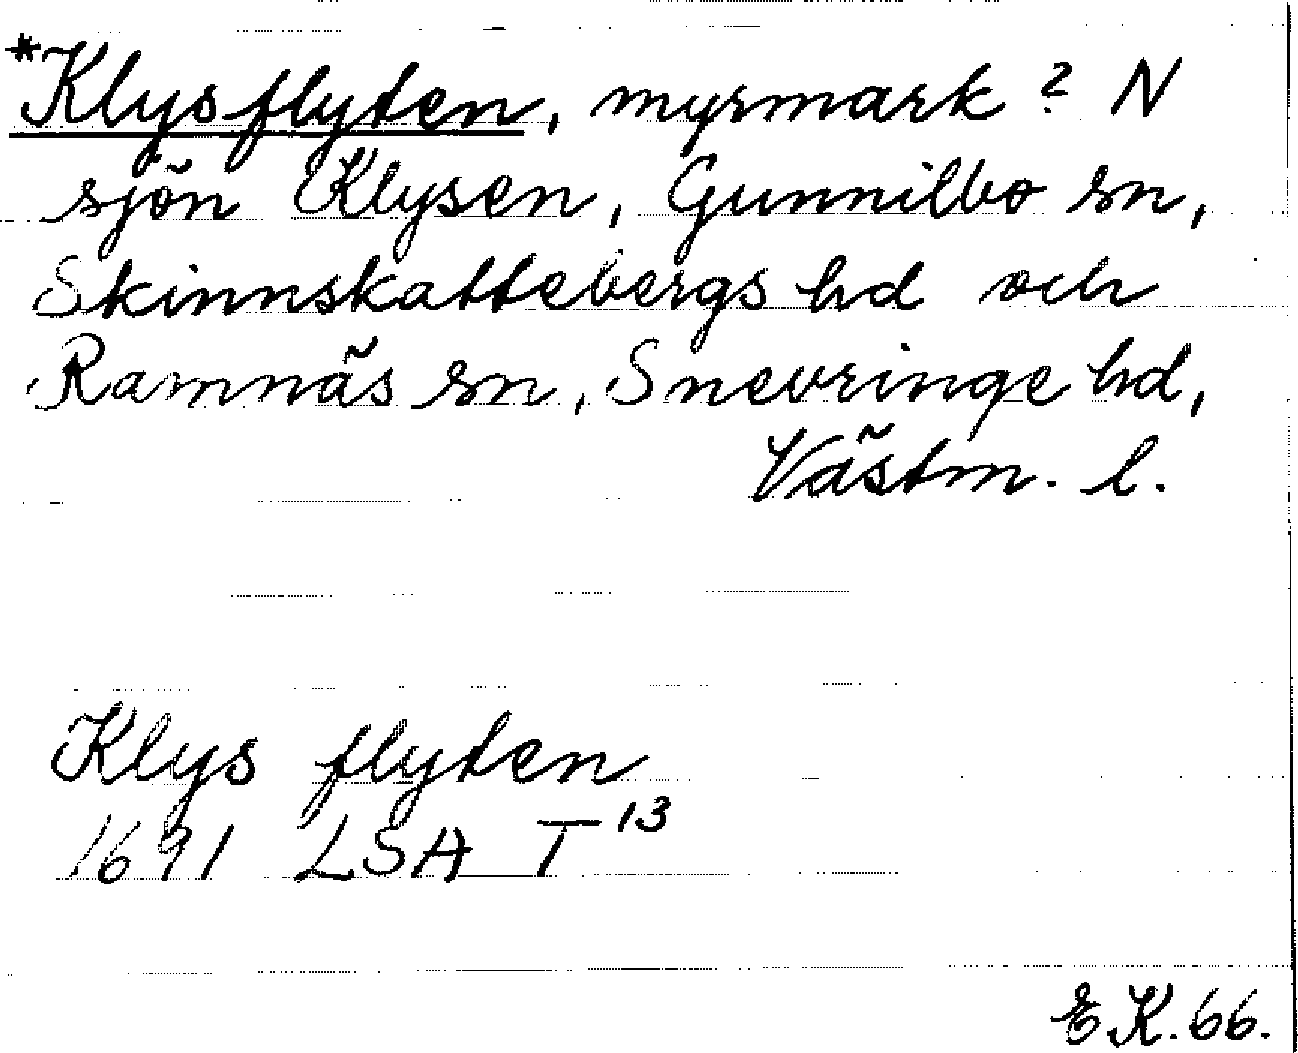 *Klysflyten, myrmark? N
sjön Klysen, Gunnilbo sn,
Skinnskattebergs hd och
Ramnäs sn, Snevringe hd,
Västm. l.
Klys flyten
1691 LSA T 13
E.K. 66.